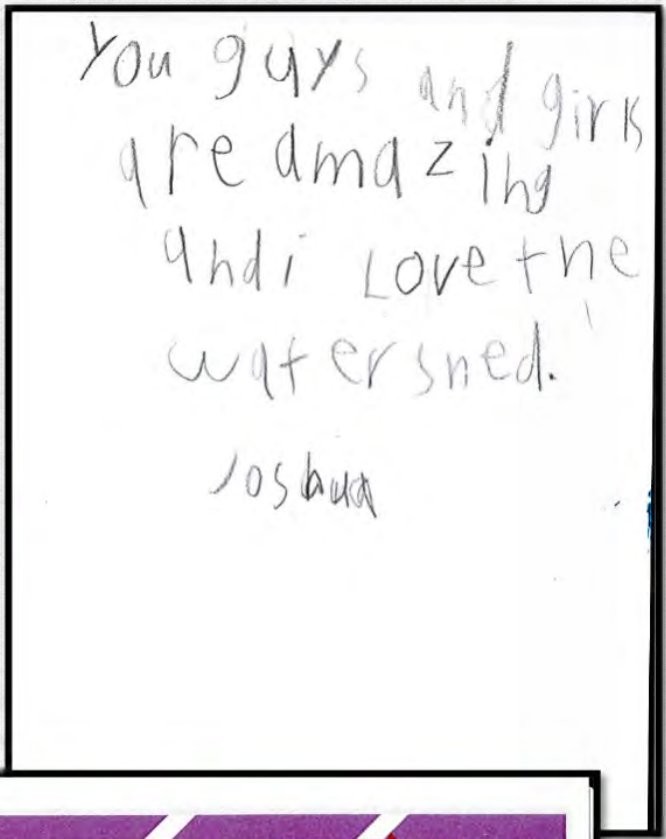 You guys and girls
are amazing
and i Love the
watershed.
Joshua